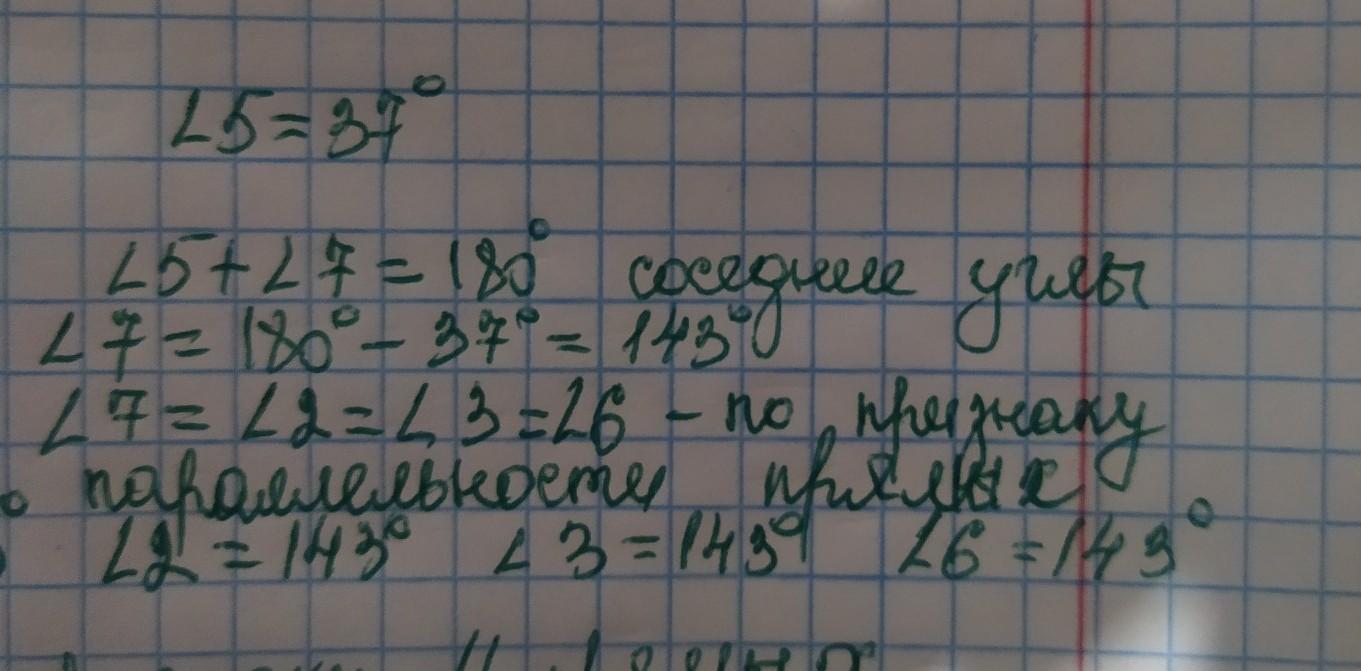 ∠5=37°
∠5+∠7=180° соседние углы
∠7=180°-37°=143°
∠7=∠2=∠3=∠6 - по признаку
параллельности прямых
∠2=143° ∠3=143° ∠6=143°